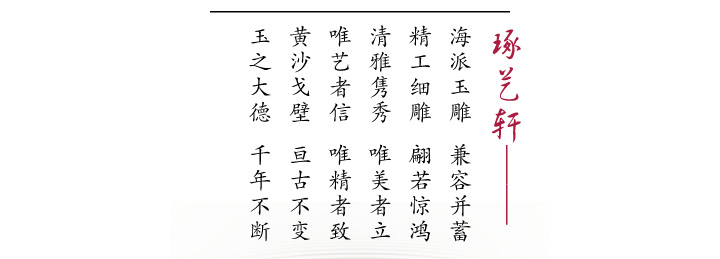 琢艺轩
海派玉雕 兼容并蓄
精工细雕 翩若惊鸿
清雅隽秀 唯美者立
唯艺者信 唯精者致
黄沙戈壁 亘古不变
玉之大德 千年不断